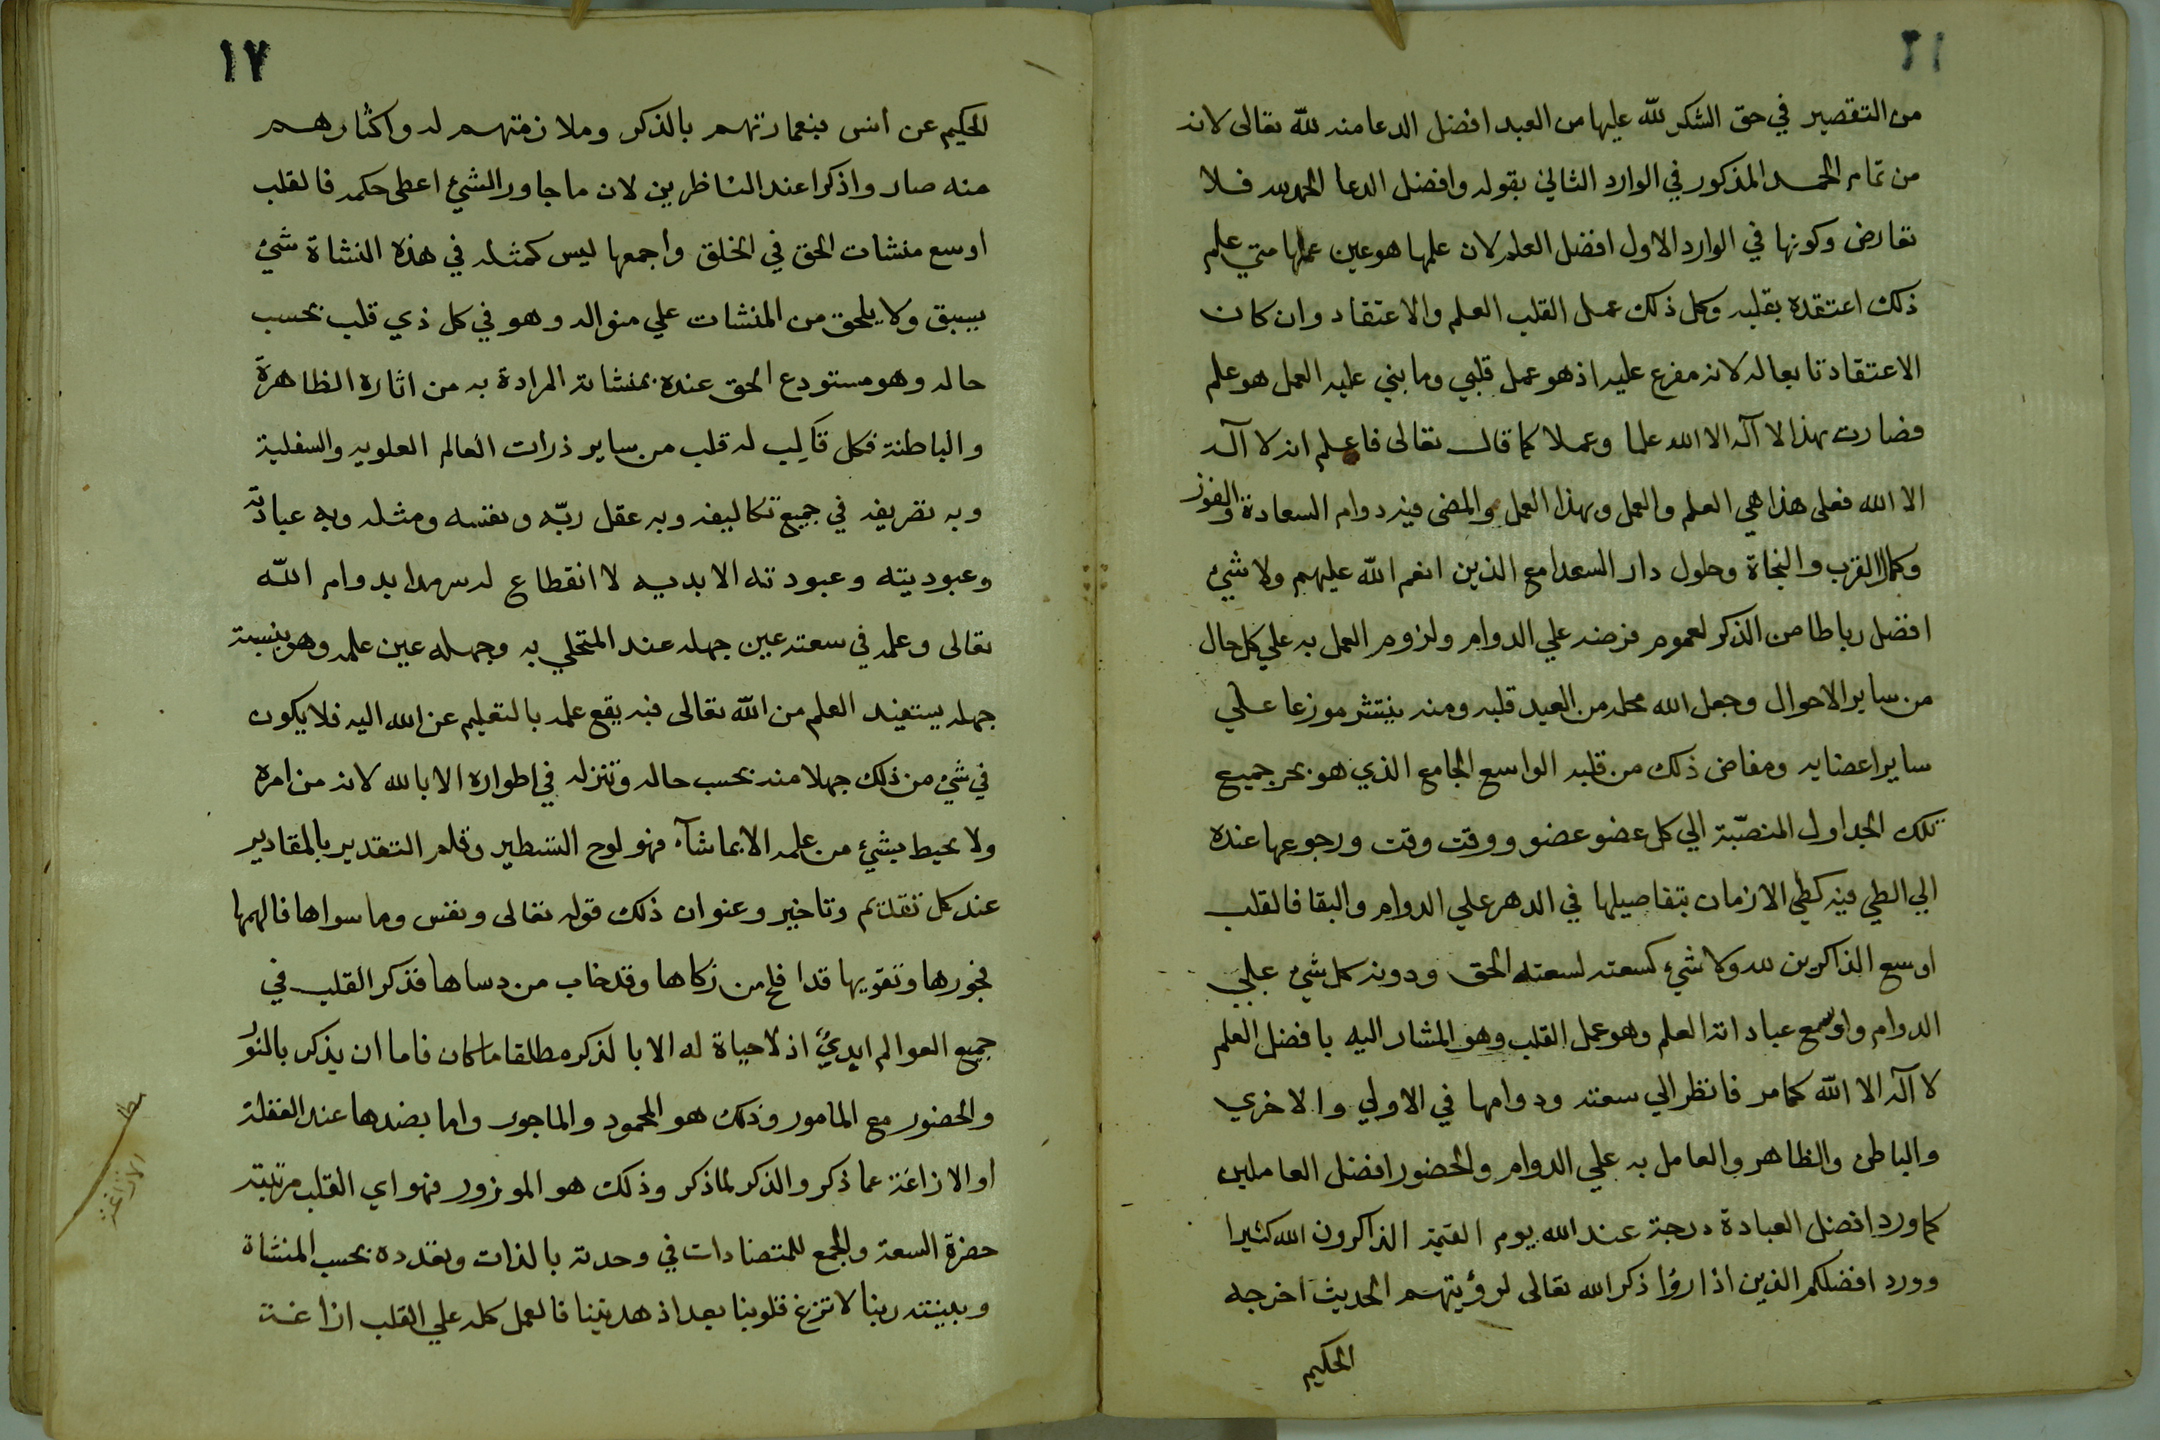 من التقصير في حق الشكر لله عليها من العبد افضل الدعا منه لله تعالى لانه
من تمام الحمد المذكور في الوارد الثاني بقوله وافضل الدعا الحمد لله فلا
تعارض وكونها في الوارد الاول افضل العلم لان علمها هو عين عملها متي علم
ذلك اعتقده بقلبه وكل ذلك عمل القلب العلم والاعتقاد وان كان
الاعتقاد تابعا له لانه مفرع عليه اذ هو عمل قلبي وما بني عليه العمل هو علم
فصارت بهذا لا آله الا الله علما وعملا كما قال تعالى فاعلم انه لا آله
الا الله فعلى هذا هي العلم والعمل وبهذا العمل والمضى فيه دوام السعادة والفوز
وكمال القرب والنجاة وحلول دار السعدا مع الذين انعم الله عليهم ولا شيء
افضل رباطا من الذكر لعموم فرضه علي الدوام ولزوم العمل به علي كل حال
من ساير الاحوال وجعل الله محله من العبد قلبه ومنه ينتشر موزعا علي
ساير اعضايه ومفاض ذلك من قلبه الواسع الجامع الذي هو بحر جميع
تلك الجداول المنصبّة الي كل عضو عضو ووقت وقت ورجوعها عنده
الي الطي فيه كطي الازمان بتفاصيلها في الدهر علي الدوام والبقا فالقلب
اوسع الذاكرين لله ولا شيء كسعته لسعته الحق ودونه كل شي علي
الدوام واوسع عباداته العلم وهو عمل القلب وهو المشار اليه بافضل العلم
لا آله الا الله كما مر فانظر الي سعته ودوامها في الاولي والاخري
والباطن والظاهر والعامل به علي الدوام والحضور افضل العاملين
كما ورد افضل العبادة درجة عند الله يوم القيمة الذاكرون الله كثيرا
وورد افضلكم الذين اذا رؤا ذكر الله تعالى لرؤيتهم الحديث اخرجه
الحكيم
١٧
الحكيم عن انس فبعمارتهم بالذكر وملازمتهم له واكثارهم
منه صار واذكرا عند الناظرين لان ما جاور الشيء اعطى حكمه فالقلب
اوسع منشات الحق في الخلق واجمعها ليس كمثله في هذه النشاة شيء
يسبق ولا يلحق من المنشات علي منواله وهو في كل ذي قلب بحسب
حاله وهو مستودع الحق عنده بمنشاته المرادة به من اثاره الظاهرة
والباطنة فكل قالِب له قلب من ساير ذرات العالم العلويه والسفلية
وبه تصريفه في جميع تكاليفه وبه عقل ربّه ونفسه ومثله وبه عبادته
وعبوديته وعبودته الابديه لا انقطاع له سرمدا بدوام الله
تعالى وعلمه في سعته عين جهله عند المتحلي به وجهله عين علمه وهو بنسبة
جهله يستفيد العلم من الله تعالى فبه يقع علمه بالتعليم عن الله اليه فلا يكون
في شي من ذلك جهلا منه بحسب حاله وتنزله في اطواره الا بالله لانه من امره
ولا يحيط بشيء من علمه الا بما شآ فهو لوح التسطير وقلم التقدير بالمقادير
عند كل تقديم وتاخير وعنوان ذلك قوله تعالى ونفس وما سواها فالهمها
فجورها وتقويها قد افلح من زكاها وقد خاب من دساها فذكر القلب في
جميع العوالم ابديٌّ اذ لا حياة له الا بالذكر مطلقا ما كان فاما ان يذكر بالنور
والحضور مع المامور وذلك هو المحمود والماجور واما بضدها عند الغفلة
او الازاغة عما ذكر والذكر لما ذكر وذلك هو الموزور فهو اي القلب مرتبته
حضرة السعة والجمع للمتضادات في وحدته بالذات وتعدده بحسب المنشاة
وبينته ربنا لا تزغ قلوبنا بعد اذ هديتنا فالعمل كله علي القلب ازاغة
الازاغة